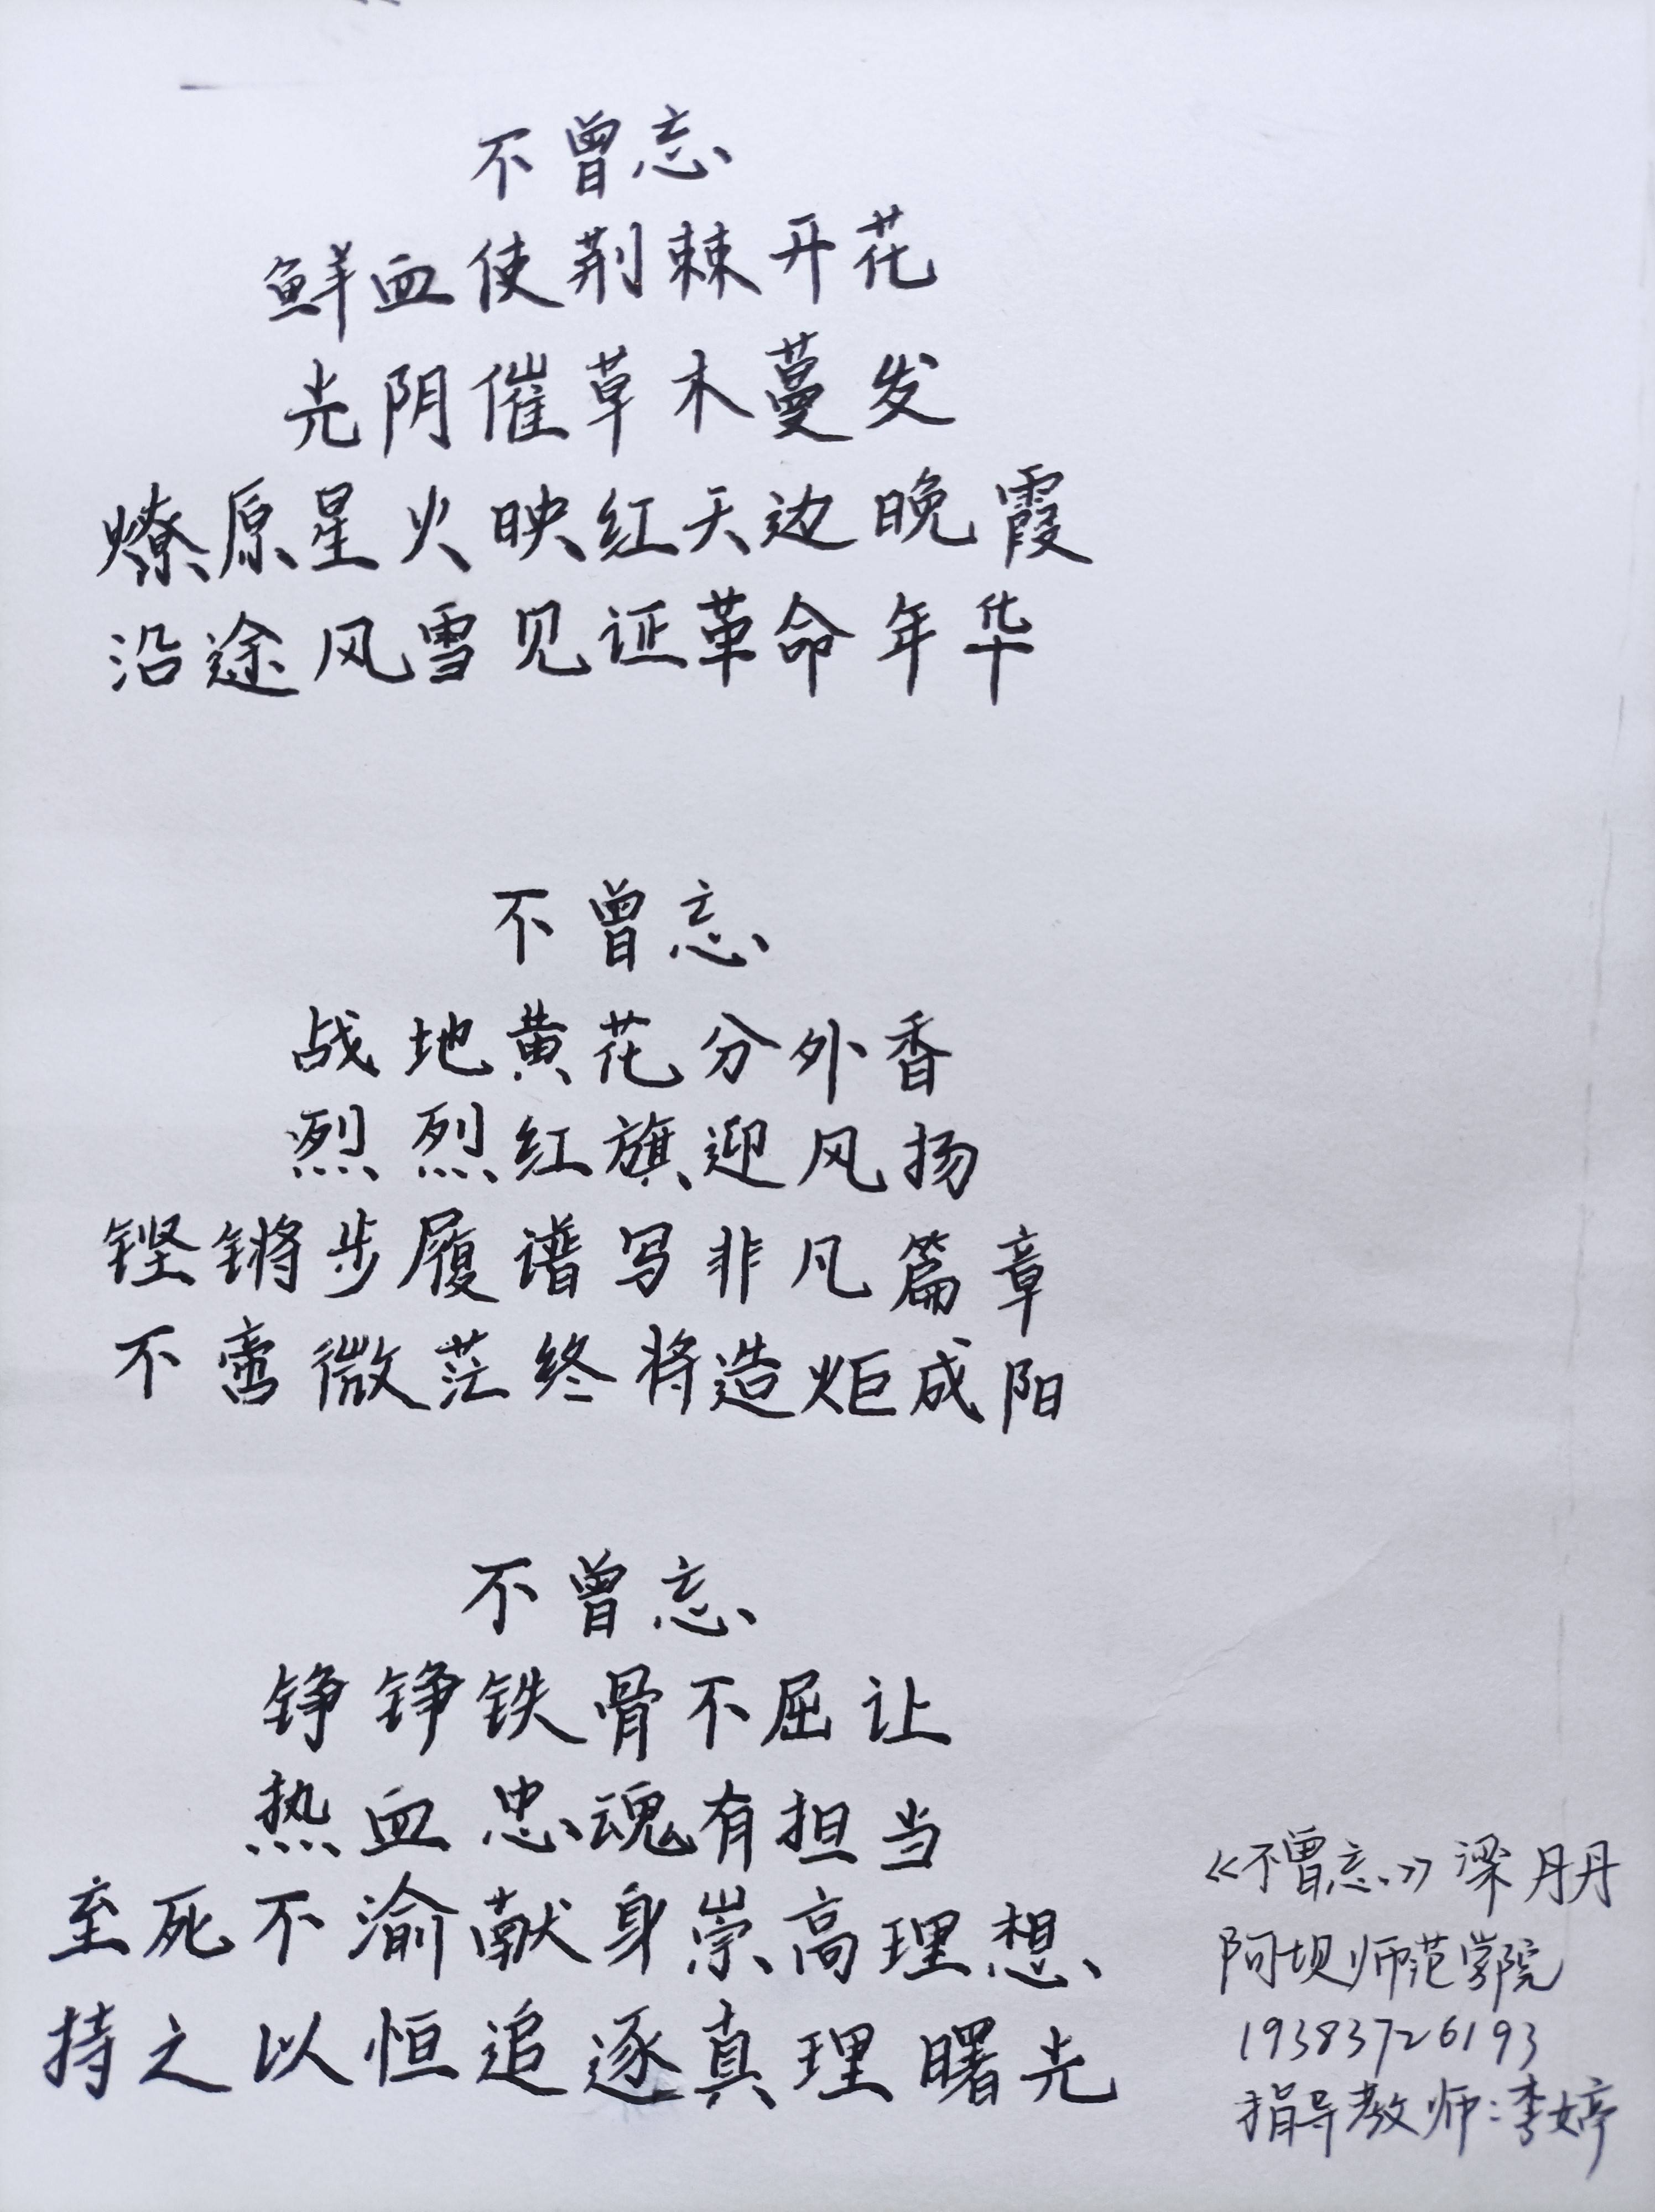 不曾忘
鲜血使荆棘开花
光阴催草木蔓发
燎原星火映红天边晚霞
沿途风雪见证革命年华
不曾忘
战地黄花分外香
烈烈红旗迎风扬
铿锵步履谱写非凡篇章
不啻微茫终将造炬成阳
不曾忘
铮铮铁骨不屈让
热血忠魂有担当
至死不渝献身崇高理想
持之以恒追逐真理曙光
《不曾忘》梁丹丹
阿坝师范学院
19383726193
指导教师:李婷